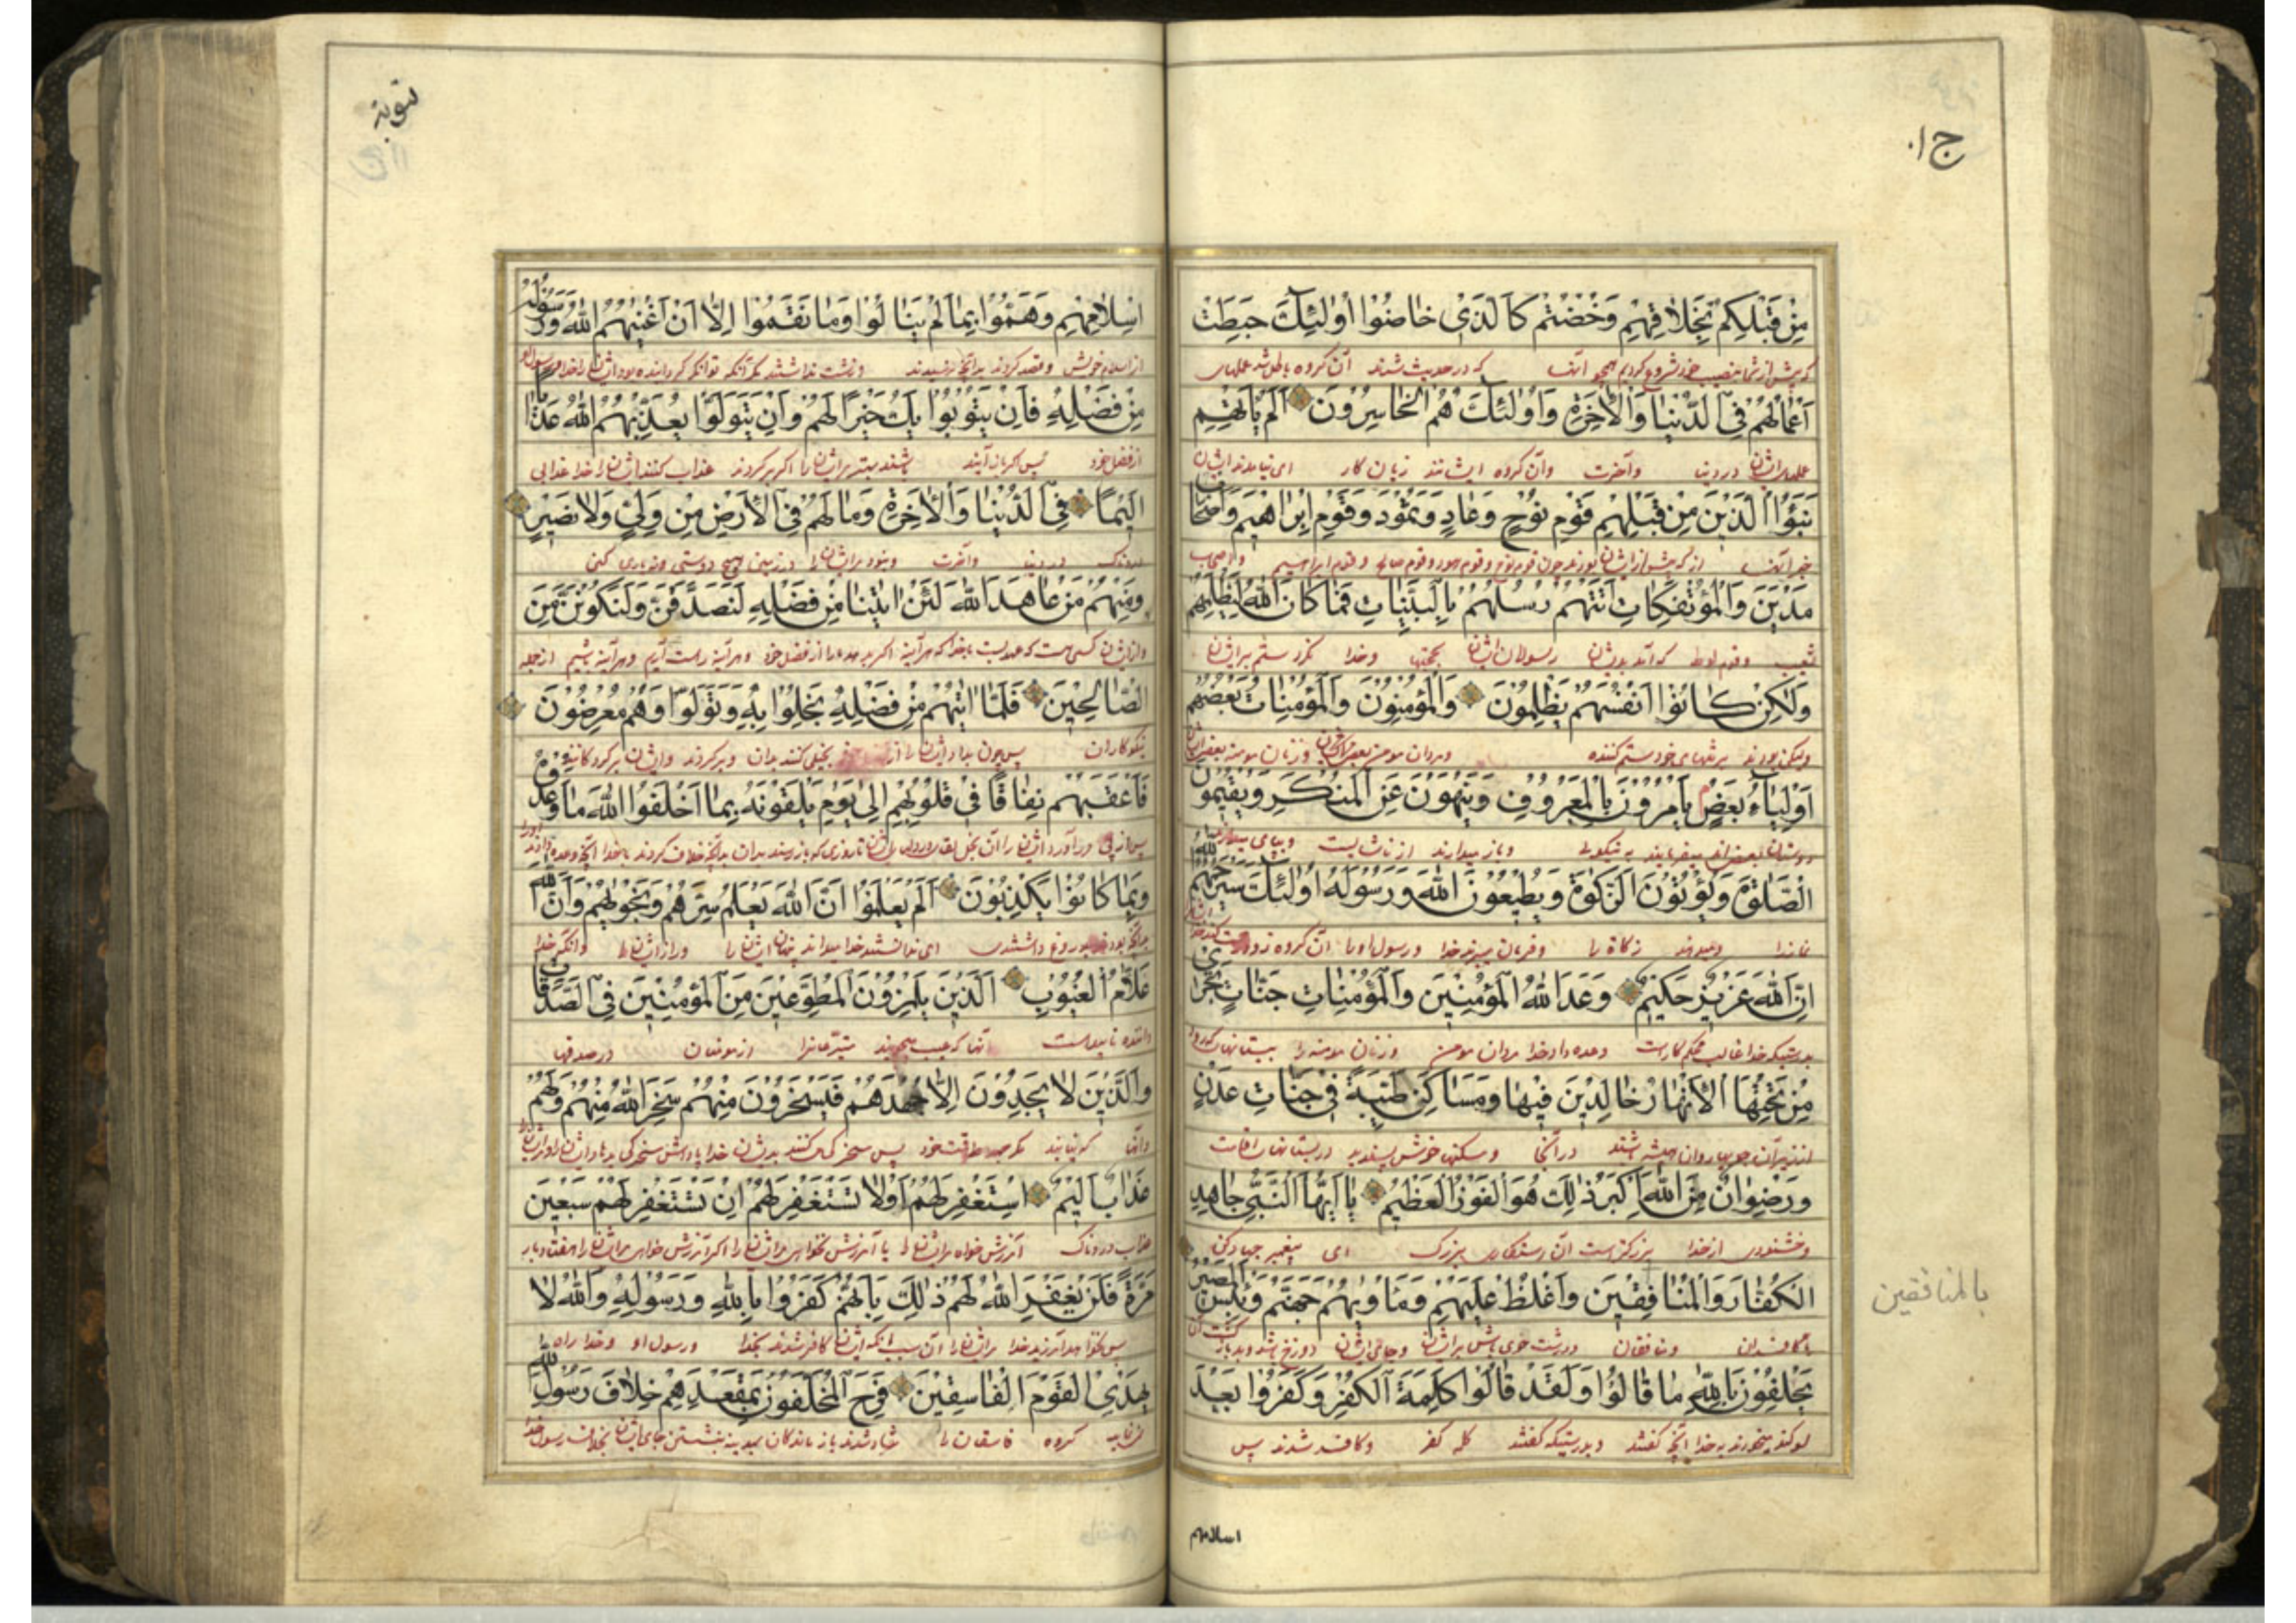 ج١٠
مِنْ قَبْلِكُمْ بِخَلَاقِهِمْ وَخُضْتُمْ كَالَّذِي خَاضُوا أُولٰئِكَ حَبِطَتْ
که پیش از شما بنصیب خود شروع کردیم همچو آنها که در حدیث شدند آن گروه باطل شد عملهای
أَعْمَالُهُمْ فِي الدُّنْيَا وَالْآخِرَةِ وَأُولٰئِكَ هُمُ الْخَاسِرُونَ أَلَمْ يَأْتِهِمْ
عملهای ایشان در دنیا وآخرت وآن گروه ایشانند زیان کار ای نیامد ایشان
نَبَؤُا الَّذِينَ مِنْ قَبْلِهِمْ قَوْمِ نُوحٍ وَعَادٍ وَثَمُودَ وَقَوْمِ إِبْرَاهِيمَ وَأَصْحَابِ
خبر آنها که پیش از ایشان بودند چون قوم نوح وقوم هود وقوم صالح وقوم ابراهیم واصحاب
مَدْيَنَ وَالْمُؤْتَفِكَاتِ أَتَتْهُمْ رُسُلُهُمْ بِالْبَيِّنَاتِ فَمَا كَانَ اللّٰهُ لِيَظْلِمَهُمْ
شعیب وقوم لوط که آمد بدیشان رسولان ایشان بحجتها وخدا نکرد ستم برایشان
وَلٰكِنْ كَانُوا أَنْفُسَهُمْ يَظْلِمُونَ وَالْمُؤْمِنُونَ وَالْمُؤْمِنَاتُ بَعْضُهُمْ
ولیکن بودند بر تنهای خود ستم کننده ومردان مومن وزنان مومنه بعض ایشان
أَوْلِيَاءُ بَعْضٍ يَأْمُرُونَ بِالْمَعْرُوفِ وَيَنْهَوْنَ عَنِ الْمُنْكَرِ وَيُقِيمُونَ
دوستان بعض اند میفرمایند به نیکوئی وباز میدارند از ناشایست وبپای میدارند
الصَّلٰوةَ وَيُؤْتُونَ الزَّكٰوةَ وَيُطِيعُونَ اللّٰهَ وَرَسُولَهُ أُولٰئِكَ سَيَرْحَمُهُمُ اللّٰهُ
نماز را ومیدهند زکاة را وفرمان میبرند خدا ورسول او را آن گروه زود
إِنَّ اللّٰهَ عَزِيزٌ حَكِيمٌ وَعَدَ اللّٰهُ الْمُؤْمِنِينَ وَالْمُؤْمِنَاتِ جَنَّاتٍ تَجْرِي
بدرستیکه خدا غالب محکم کار است وعده داد خدا مردان مومن وزنان مومنه را ببستانها که رود
مِنْ تَحْتِهَا الْأَنْهَارُ خَالِدِينَ فِيهَا وَمَسَاكِنَ طَيِّبَةً فِي جَنَّاتِ عَدْنٍ
از زیر آن جویها روان همیشه باشند در آنجا ومسکنها خوش پسندیده در بستانهای اقامت
وَرِضْوَانٌ مِنَ اللّٰهِ أَكْبَرُ ذٰلِكَ هُوَ الْفَوْزُ الْعَظِيمُ يَا أَيُّهَا النَّبِيُّ جَاهِدِ
وخشنودی از خدا بزرگتر است آن رستگاری بزرگ ای پیغمبر جهاد کن
الْكُفَّارَ وَالْمُنَافِقِينَ وَاغْلُظْ عَلَيْهِمْ وَمَأْوٰيهُمْ جَهَنَّمُ وَبِئْسَ الْمَصِيرُ
با کافران ومنافقان ودرشت خوی باش برایشان وجای ایشان دوزخ
بالمنافقين
يَحْلِفُونَ بِاللّٰهِ مَا قَالُوا وَلَقَدْ قَالُوا كَلِمَةَ الْكُفْرِ وَكَفَرُوا بَعْدَ
سوگند میخورند به خدا آنچه گفتند وبدرستیکه گفتند کلمه کفر وکافر شدند پس
اسلامهم
توبة
إِسْلَامِهِمْ وَهَمُّوا بِمَا لَمْ يَنَالُوا وَمَا نَقَمُوا إِلَّا أَنْ أَغْنٰيهُمُ اللّٰهُ وَرَسُولُهُ
از اسلام خویش وقصد کردند بدانچه نرسیدند وزشت نداشتند مگر آنکه توانگر گردانید ایشان را خدا ورسول او
مِنْ فَضْلِهِ فَإِنْ يَتُوبُوا يَكُ خَيْرًا لَهُمْ وَإِنْ يَتَوَلَّوْا يُعَذِّبْهُمُ اللّٰهُ عَذَابًا
از فضل خود پس اگر باز آیند باشد بهتر برایشان را اگر برگردند عذاب کند ایشان را خدا عذابی
أَلِيمًا فِي الدُّنْيَا وَالْآخِرَةِ وَمَا لَهُمْ فِي الْأَرْضِ مِنْ وَلِيٍّ وَلَا نَصِيرٍ
دردناک در دنیا وآخرت ونبود مرایشان را در زمین هیچ دوستی ونه یاری کنی
وَمِنْهُمْ مَنْ عَاهَدَ اللّٰهَ لَئِنْ اٰتٰينَا مِنْ فَضْلِهِ لَنَصَّدَّقَنَّ وَلَنَكُونَنَّ مِنَ
وازیشان کسی هست که عهد بست با خدا که هرآینه اگر بدهد ما را از فضل خود وهرآینه باشیم از جمله
الصَّالِحِينَ فَلَمَّا اٰتٰيهُمْ مِنْ فَضْلِهِ بَخِلُوا بِهِ وَتَوَلَّوْا وَهُمْ مُعْرِضُونَ
نیکوکاران پس چون بداد ایشان را از بخیلی کنند بدان وبرگردند وایشان
فَأَعْقَبَهُمْ نِفَاقًا فِي قُلُوبِهِمْ إِلٰى يَوْمِ يَلْقَوْنَهُ بِمَا أَخْلَفُوا اللّٰهَ مَا وَعَدُوهُ
ایشان را تا روزی که باز رسند بدان بدانچه خلاف کردند با خدا آنچه وعده دادند
وَبِمَا كَانُوا يَكْذِبُونَ أَلَمْ يَعْلَمُوا أَنَّ اللّٰهَ يَعْلَمُ سِرَّهُمْ وَنَجْوٰيهُمْ وَأَنَّ اللّٰهَ
ای ندانستند خدا میداند نهان ایشان را وراز ایشان را وآنکه خدا
عَلَّامُ الْغُيُوبِ الَّذِينَ يَلْمِزُونَ الْمُطَّوِّعِينَ مِنَ الْمُؤْمِنِينَ فِي الصَّدَقَاتِ
آنها که عیب میجویند متبرعانرا از مومنان در صدقها
وَالَّذِينَ لَا يَجِدُونَ إِلَّا جُهْدَهُمْ فَيَسْخَرُونَ مِنْهُمْ سَخِرَ اللّٰهُ مِنْهُمْ وَلَهُمْ
وآنها که نیابند مگر طاقت خود پس سخرگی کنند بدیشان خدا
عَذَابٌ أَلِيمٌ اسْتَغْفِرْ لَهُمْ أَوْ لَا تَسْتَغْفِرْ لَهُمْ إِنْ تَسْتَغْفِرْ لَهُمْ سَبْعِينَ
عذاب دردناک آمرزش خواه مرایشان را یا آمرزش نخواه مرایشان را اگر آمرزش خواهی مرایشان را هفتاد بار
مَرَّةً فَلَنْ يَغْفِرَ اللّٰهُ لَهُمْ ذٰلِكَ بِأَنَّهُمْ كَفَرُوا بِاللّٰهِ وَرَسُولِهِ وَاللّٰهُ لَا
خدا مرایشان را آن سبب آنکه ایشان کافر شدند بخدا ورسول او وخدا راه
يَهْدِي الْقَوْمَ الْفَاسِقِينَ فَرِحَ الْمُخَلَّفُونَ بِمَقْعَدِهِمْ خِلَافَ رَسُولِ اللّٰهِ
گروه فاسقان را شاد شدند باز ماندگان بنشستن بخلاف رسول خدا